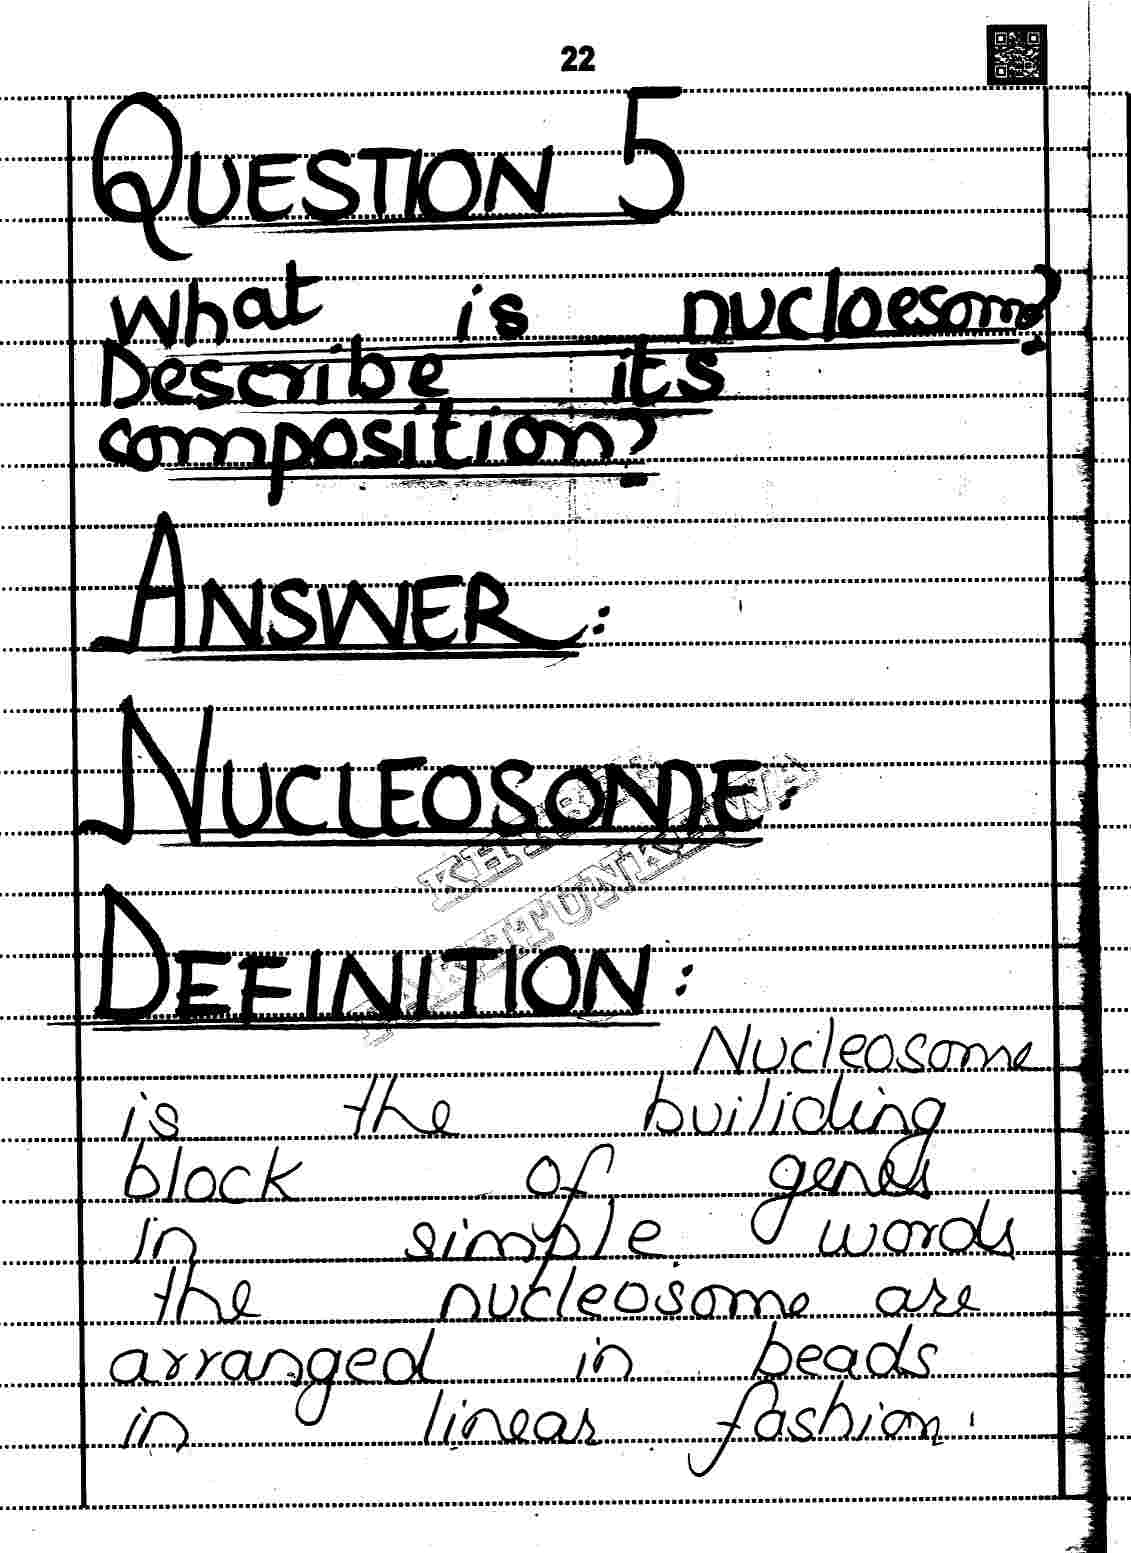 22
QUESTION 5
What is nucloesome?
Describe its
composition?
ANSWER:
NUCLEOSOME:
KHYBER
PAKHTUNKHWA
DEFINITION:
Nucleosome
is the builiding
block of genes
in simple words
the nucleosome are
arranged in beads
in linear fashion.